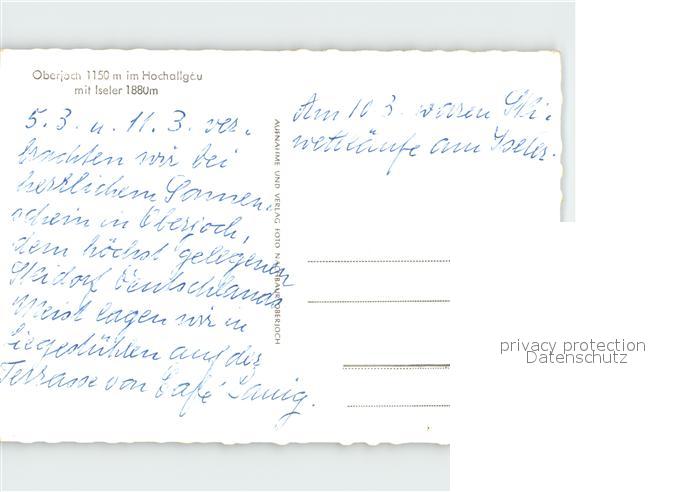 Oberjoch 1150 m im Hochallgäu
mit Iseler 1880m
5.3. u. 11.3. ver-
brachten wir bei
herrlichem Sonnen-
schein in Oberjoch,
dem höchst gelegenen
Skidorf Deutschlands
Meist lagen wir in
Liegestühlen auf der
Terrasse von Café Lanig.
AUFNAHME UND VERLAG FOTO NACHBAUR OBERJOCH
Am 10 3. waren Ski-
wettläufe am Iseler.
privacy protection
Datenschutz